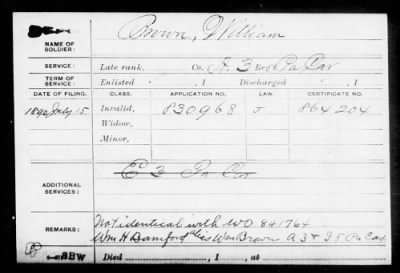 Brown, William
NAME OF SOLDIER:
SERVICE: Late rank, Co. A. 3 Reg't Pa Cav
TERM OF SERVICE: Enlisted , 1 Discharged , 1
DATE OF FILING. CLASS. APPLICATION NO. LAW. CERTIFICATE NO.
1890 July 15 Invalid, 830968 J 864204
Widow,
Minor,
E 3 Pa Cav
ADDITIONAL SERVICES:
REMARKS: Not identical with W.O. 841764
Wm H Bamford alias Wm Brown A 3 & I 5 Pa Cav
BBW Died , 1 , at